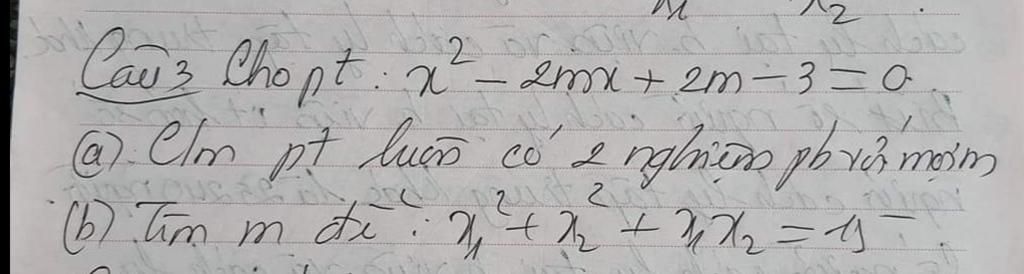 x₂
Câu 3 Cho pt: x² - 2mx + 2m - 3 = 0.
(a). C/m pt luôn có 2 nghiệm pb với mọi m
(b) Tìm m để: x₁² + x₂² + x₁x₂ =